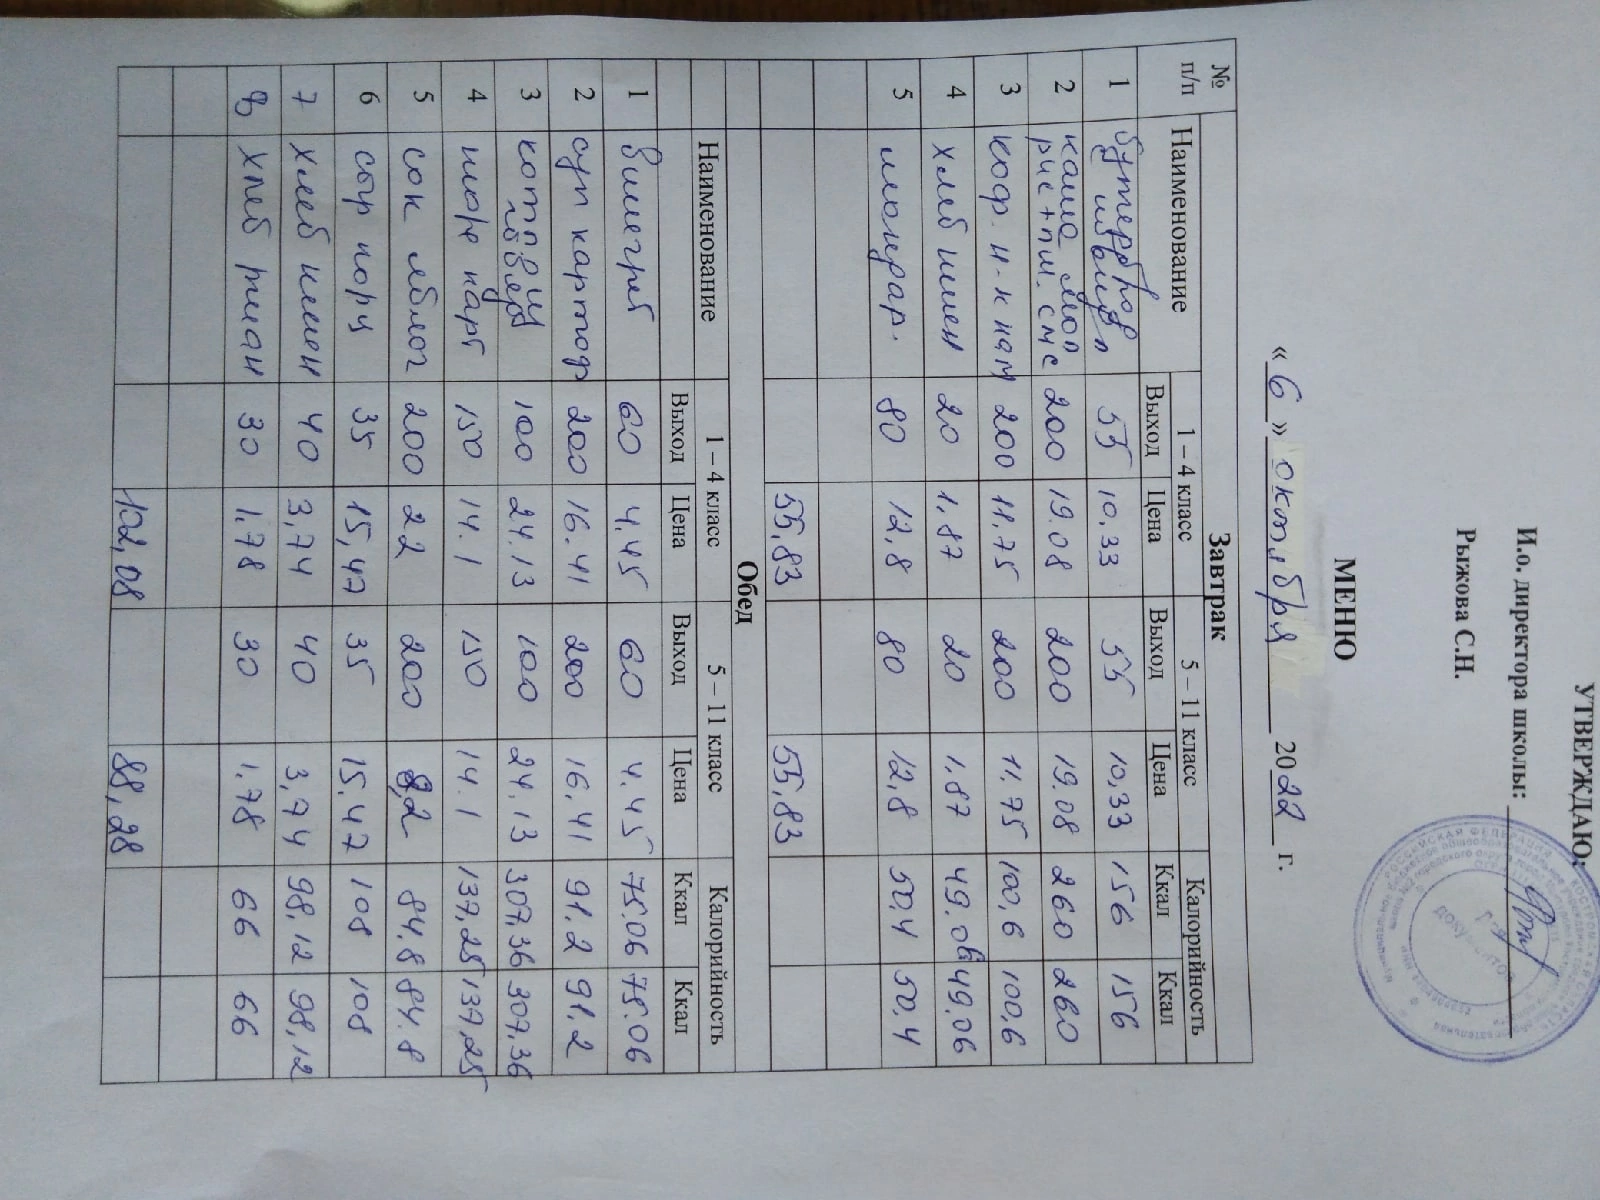 УТВЕРЖДАЮ:
И.о. директора школы:
Рыжова С.Н.
МЕНЮ
« 6 » октября 2022 г.
Завтрак
№ п/п Наименование 1 – 4 класс 5 – 11 класс Калорийность
Выход Цена Выход Цена Ккал Ккал
1 бутерброд 55 10,33 55 10,33 156 156
2 каша мол 200 19.08 200 19.08 260 260
рис + пш. смс
3 коф. н-к нат 200 11.75 200 11.75 100,6 100,6
4 хлеб пшен 20 1,87 20 1.87 49.06 49.06
5 80 12,8 80 12.8 50,4 50,4
55,83 55,83
Обед
Наименование 1 – 4 класс 5 – 11 класс Калорийность
Выход Цена Выход Цена Ккал Ккал
1 винегрет 60 4,45 60 4.45 75.06 75.06
2 суп картоф 200 16.41 200 16,41 91.2 91.2
3 100 24.13 100 24.13 307,36 307,36
4 пюре карт 150 14.1 150 14.1 137,25 137,25
5 сок яблоч 200 22 200 8,2 84.8 84.8
6 сыр порц 35 15,47 35 15.47 108 108
7 хлеб пшен 40 3,74 40 3,74 98,12 98,12
8 хлеб ржан 30 1,78 30 1.78 66 66
102,08 88,28